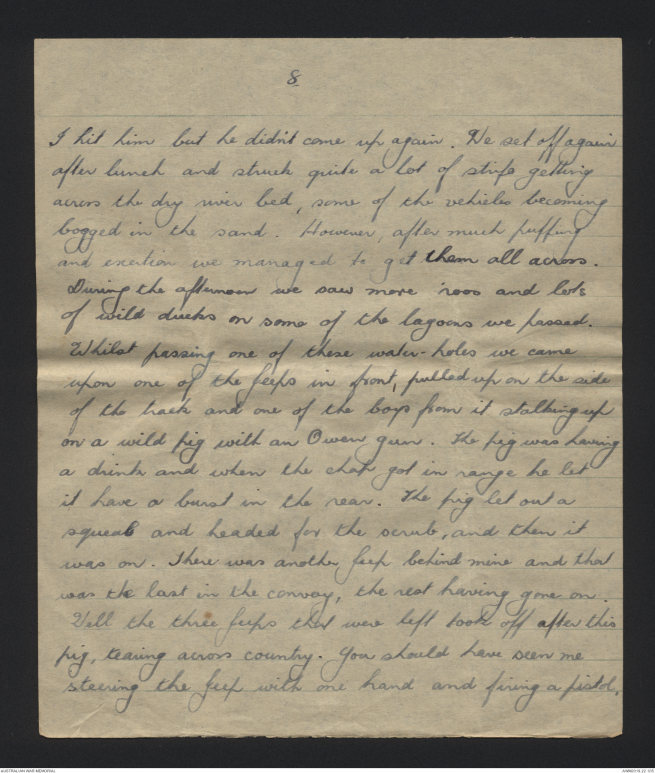 8
I hit him but he didn't come up again. We set off again
after lunch and struck quite a lot of strife getting
across the dry river bed, some of the vehicles becoming
bogged in the sand. However, after much puffing
and exertion we managed to get them all across.
During the afternoon we saw more 'roos and lots
of wild ducks on some of the lagoons we passed.
Whilst passing one of these water-holes we came
upon one of the jeeps in front, pulled up on the side
of the track and one of the boys from it stalking up
on a wild pig with an Owen gun. The pig was having
a drink and when the chap got in range he let
it have a burst in the rear. The pig let out a
squeal and headed for the scrub, and then it
was on. There was another jeep behind mine and that
was the last in the convoy, the rest having gone on.
Well the three jeeps that were left took off after this
pig, tearing across country. You should have seen me
steering the jeep with one hand and firing a pistol,
AUSTRALIAN WAR MEMORIAL